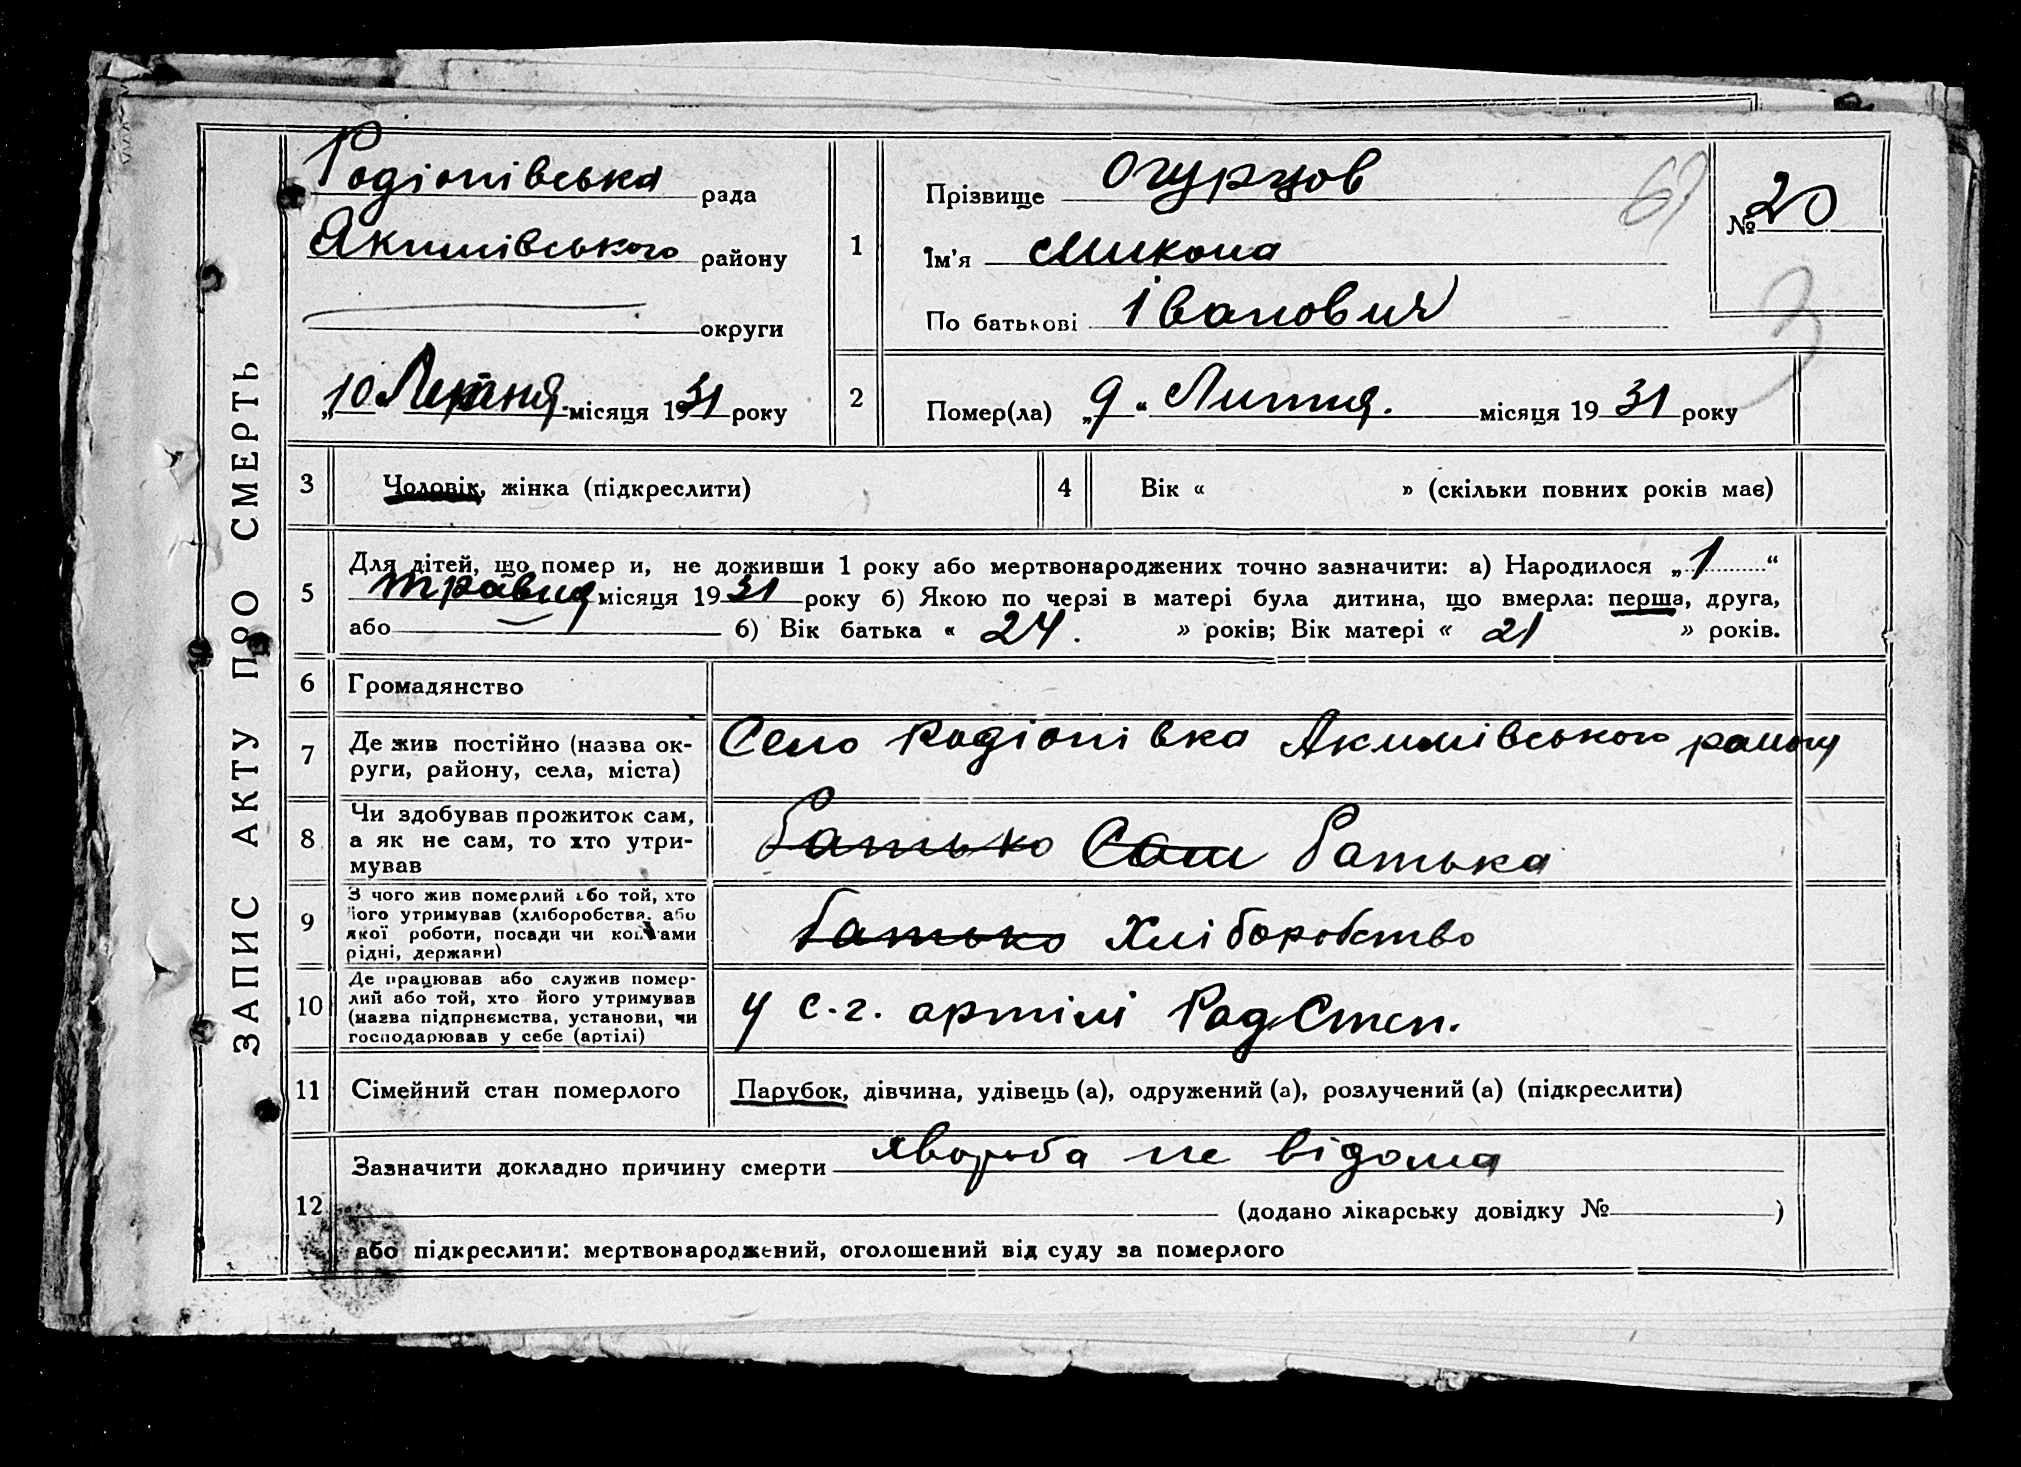 ЗАПИС АКТУ ПРО СМЕРТЬ
Родіонівська рада
Якимівського району
округи
„10 Липня місяця 1931 року
1
Прізвище Огурцов
Ім'я Микола
По батькові Іванович
69
№ 20
3
2
Помер(ла) „9“ Липня. місяця 1931 року
3
Чоловік, жінка (підкреслити)
4
Вік « » (скільки повних років має)
5
Для дітей, що помер и, не доживши 1 року або мертвонароджених точно зазначити: а) Народилося „1“
травня місяця 1931 року б) Якою по черзі в матері була дитина, що вмерла: перша, друга,
або б) Вік батька « 24. » років; Вік матері « 21 » років.
6
Громадянство
7
Де жив постійно (назва ок-
руги, району, села, міста)
Село Родіонівка Акимівського району
8
Чи здобував прожиток сам,
а як не сам, то хто утри-
мував
Батько Сам Батька
9
З чого жив померлий або той, хто
його утримував (хліборобства, або
якої роботи, посади чи коштами
рідні, держави)
Батько Хліборобство
10
Де працював або служив помер-
лий або той, хто його утримував
(назва підпрнємства, установи, чи
господарював у себе (артілі)
У с.-г. артілі Рад.Степ.
11
Сімейний стан померлого
Парубок, дівчина, удівець (а), одружений (а), розлучений (а) (підкреслити)
12
Зазначити докладно причину смерти хвороба не відома
(додано лікарську довідку № )
або підкреслити: мертвонароджений, оголошений від суду за померлого